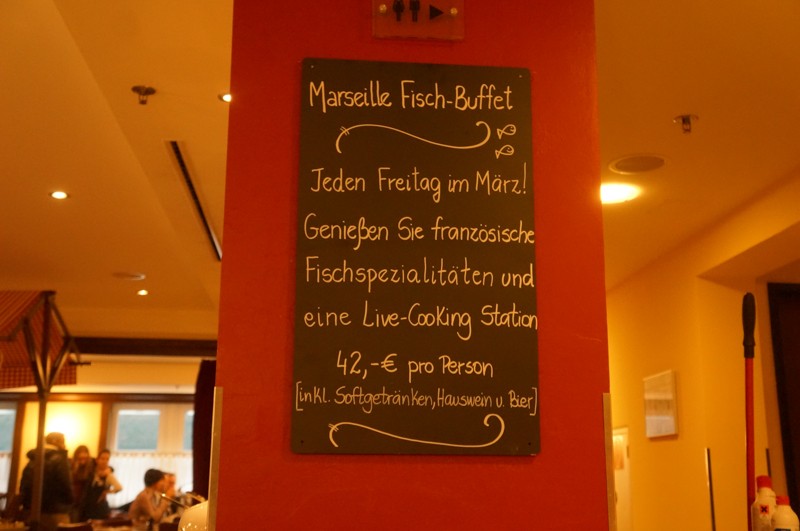 Marseille Fisch-Buffet
Jeden Freitag im März!
Genießen Sie französische
Fischspezialitäten und
eine Live-Cooking Station
42,-€ pro Person
[inkl. Softgetränken, Hauswein u. Bier]